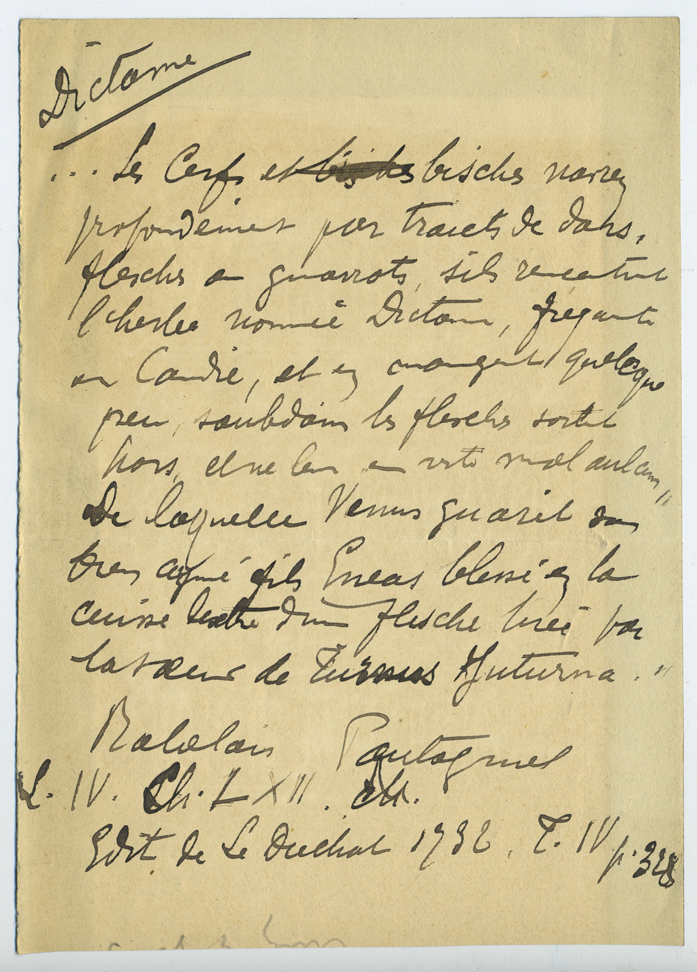 Dictame
... Les Cerfs et bisches navrez
profondément par traicts de dars,
flesches ou guarrots, s'ils rencontrent
l'herbe nommée Dictame, fréquente
en Candie, et en mangent quelcque
peu, soubdain les flesches sortent
hors, et ne leur en reste mal aulcun"
De laquelle Venus guarit son
bien aymé fils Eneas blessé en la
cuisse dextre d'une flesche tirée par
la sœur de Turnus Juturna."
Rabelais Pantagruel
L. IV. Ch. LXII.
Edit. de Le Duchat 1732. T. IV p. 328